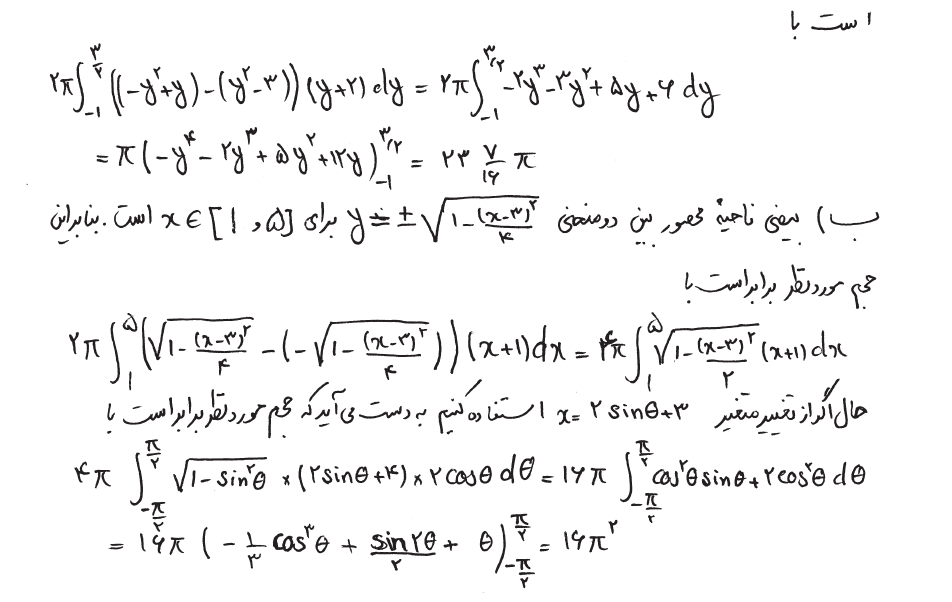 است با
۲π∫_{-۱}^{۳/۲} ((-y^۲+y)-(y^۲-۳))(y+۲) dy = ۲π∫_{-۱}^{۳/۲} -۲y^۳-۳y^۲+۵y+۶ dy
= π(-y^۴-۲y^۳+۵y^۲+۱۲y)_{-۱}^{۳/۲} = ۲۳ ۷/۱۶ π
ب) بیضی ناحیهٔ محصور بین دو منحنی y = ±√(۱-(x-۳)^۲/۴) برای x∈[۱,۵] است. بنابراین
حجم مورد نظر برابر است با
۲π∫_۱^۵ (√(۱-(x-۳)^۲/۴) - (-√(۱-(x-۳)^۲/۴)))(x+۱)dx = ۴π∫_۱^۵ √(۱-(x-۳)^۲/۲) (x+۱) dx
حال اگر از تغییر متغیر x=۲sinθ+۳ استفاده کنیم به دست می‌آید که حجم مورد نظر برابر است با
۴π ∫_{-π/۲}^{π/۲} √(۱-sin^۲θ) × (۲sinθ+۴) × ۲cosθ dθ = ۱۶π ∫_{-π/۲}^{π/۲} cos^۲θ sinθ + ۲cos^۲θ dθ
= ۱۶π (-۱/۳ cos^۳θ + sin۲θ/۲ + θ)_{-π/۲}^{π/۲} = ۱۶π^۲